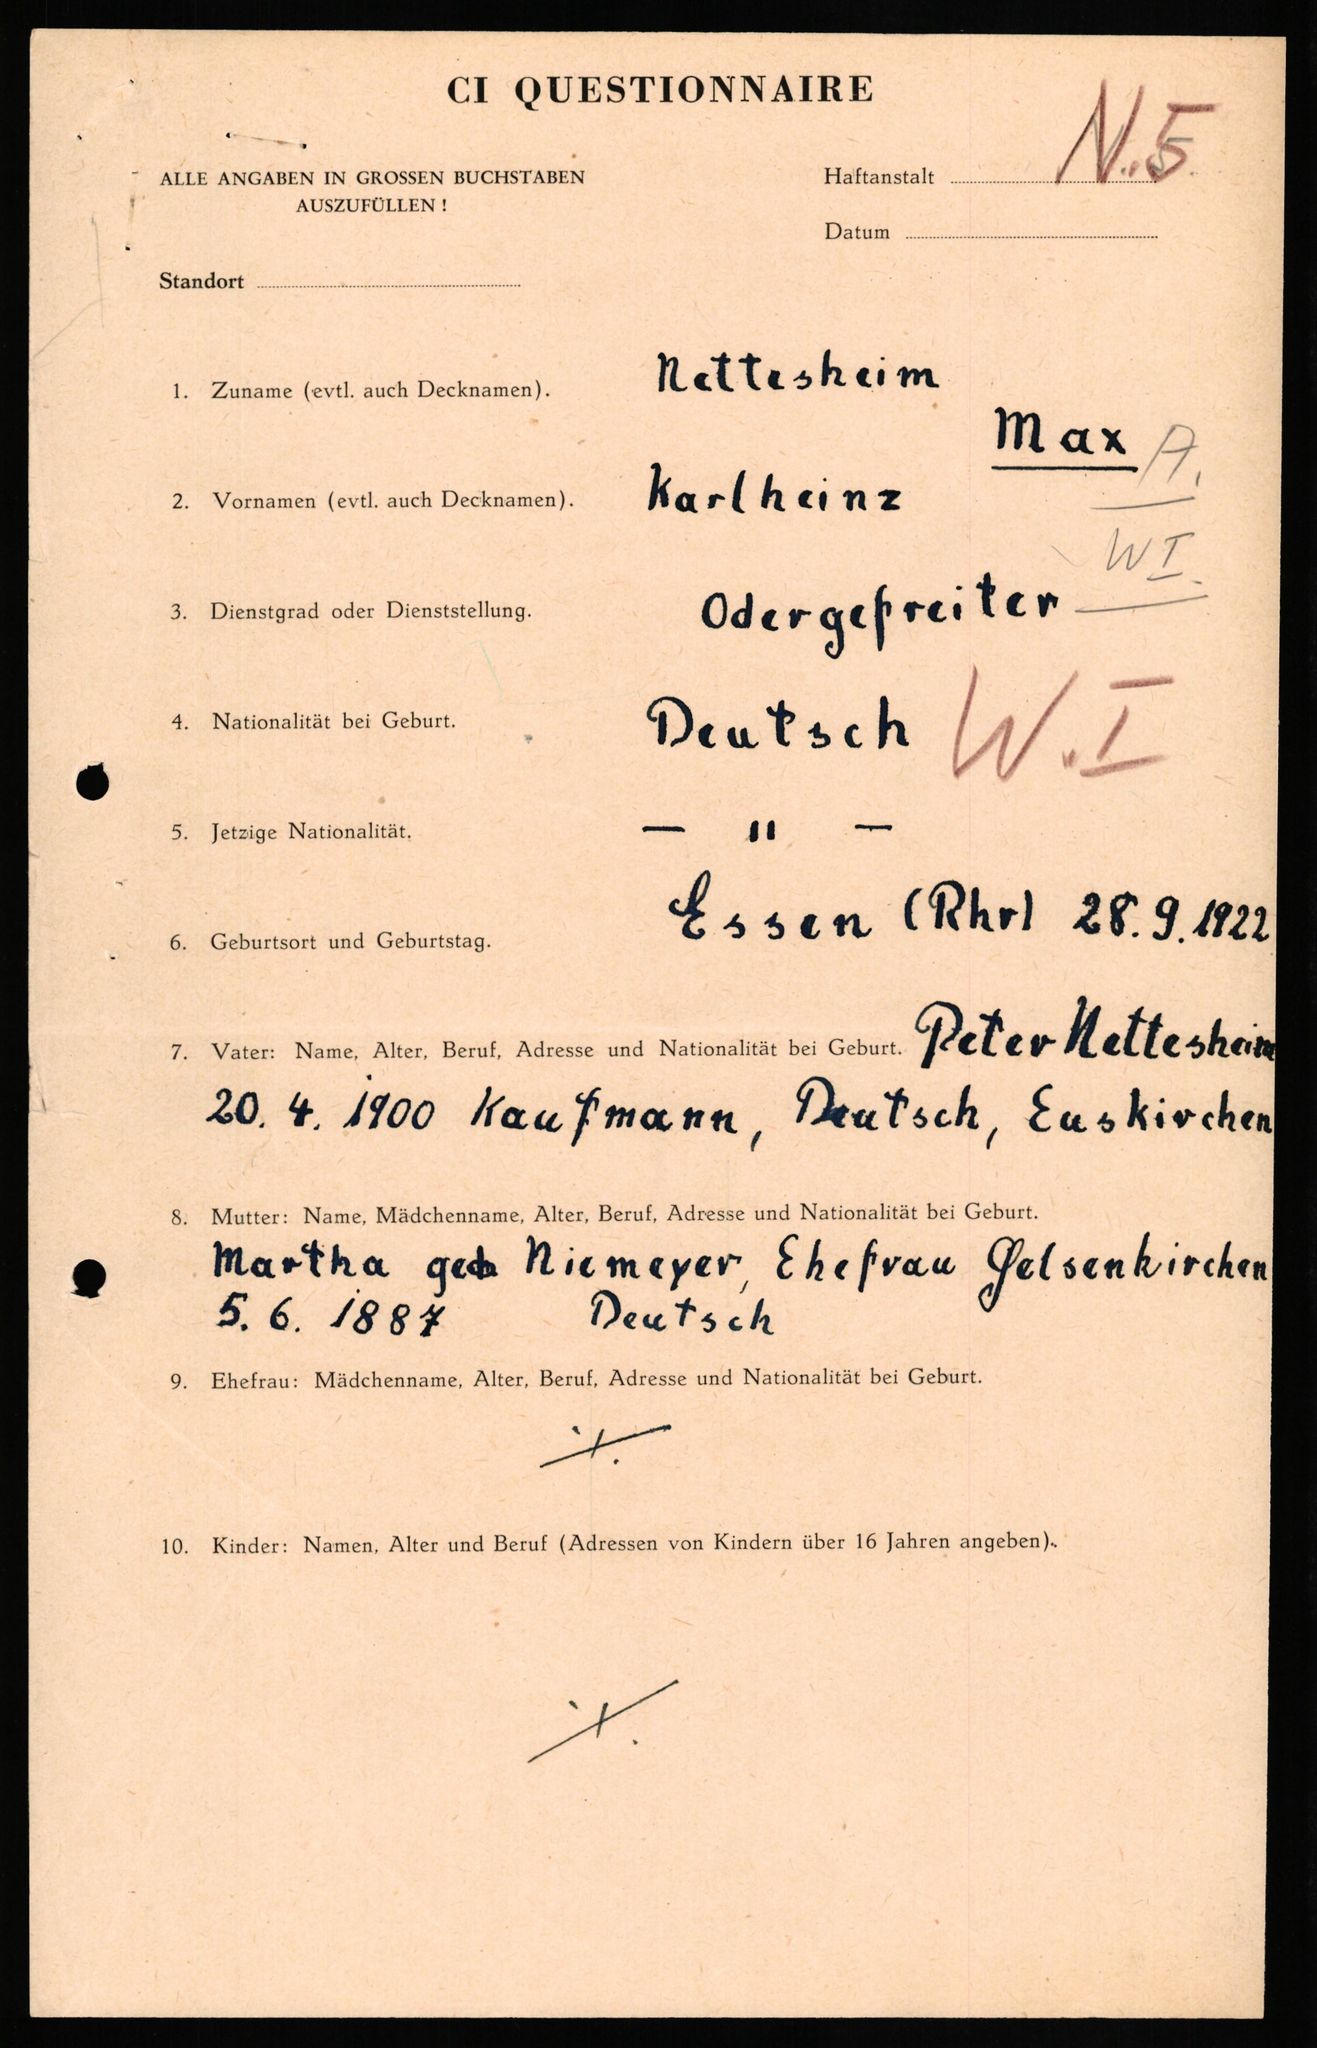 CI QUESTIONNAIRE
N.5
ALLE ANGABEN IN GROSSEN BUCHSTABEN
AUSZUFÜLLEN!
Haftanstalt
Datum
Standort
1. Zuname (evtl. auch Decknamen). Nettesheim
Max A.
2. Vornamen (evtl. auch Decknamen). Karlheinz
W I.
3. Dienstgrad oder Dienststellung. Odergefreiter
4. Nationalität bei Geburt. Deutsch W. I
5. Jetzige Nationalität. — " —
6. Geburtsort und Geburtstag. Essen (Rhr) 28.9.1922
7. Vater: Name, Alter, Beruf, Adresse und Nationalität bei Geburt. Peter Nettesheim
20. 4. 1900 Kaufmann, Deutsch, Euskirchen
8. Mutter: Name, Mädchenname, Alter, Beruf, Adresse und Nationalität bei Geburt.
Martha geb Niemeyer, Ehefrau Gelsenkirchen
5. 6. 1887 Deutsch
9. Ehefrau: Mädchenname, Alter, Beruf, Adresse und Nationalität bei Geburt.
·/.
10. Kinder: Namen, Alter und Beruf (Adressen von Kindern über 16 Jahren angeben).
·/.